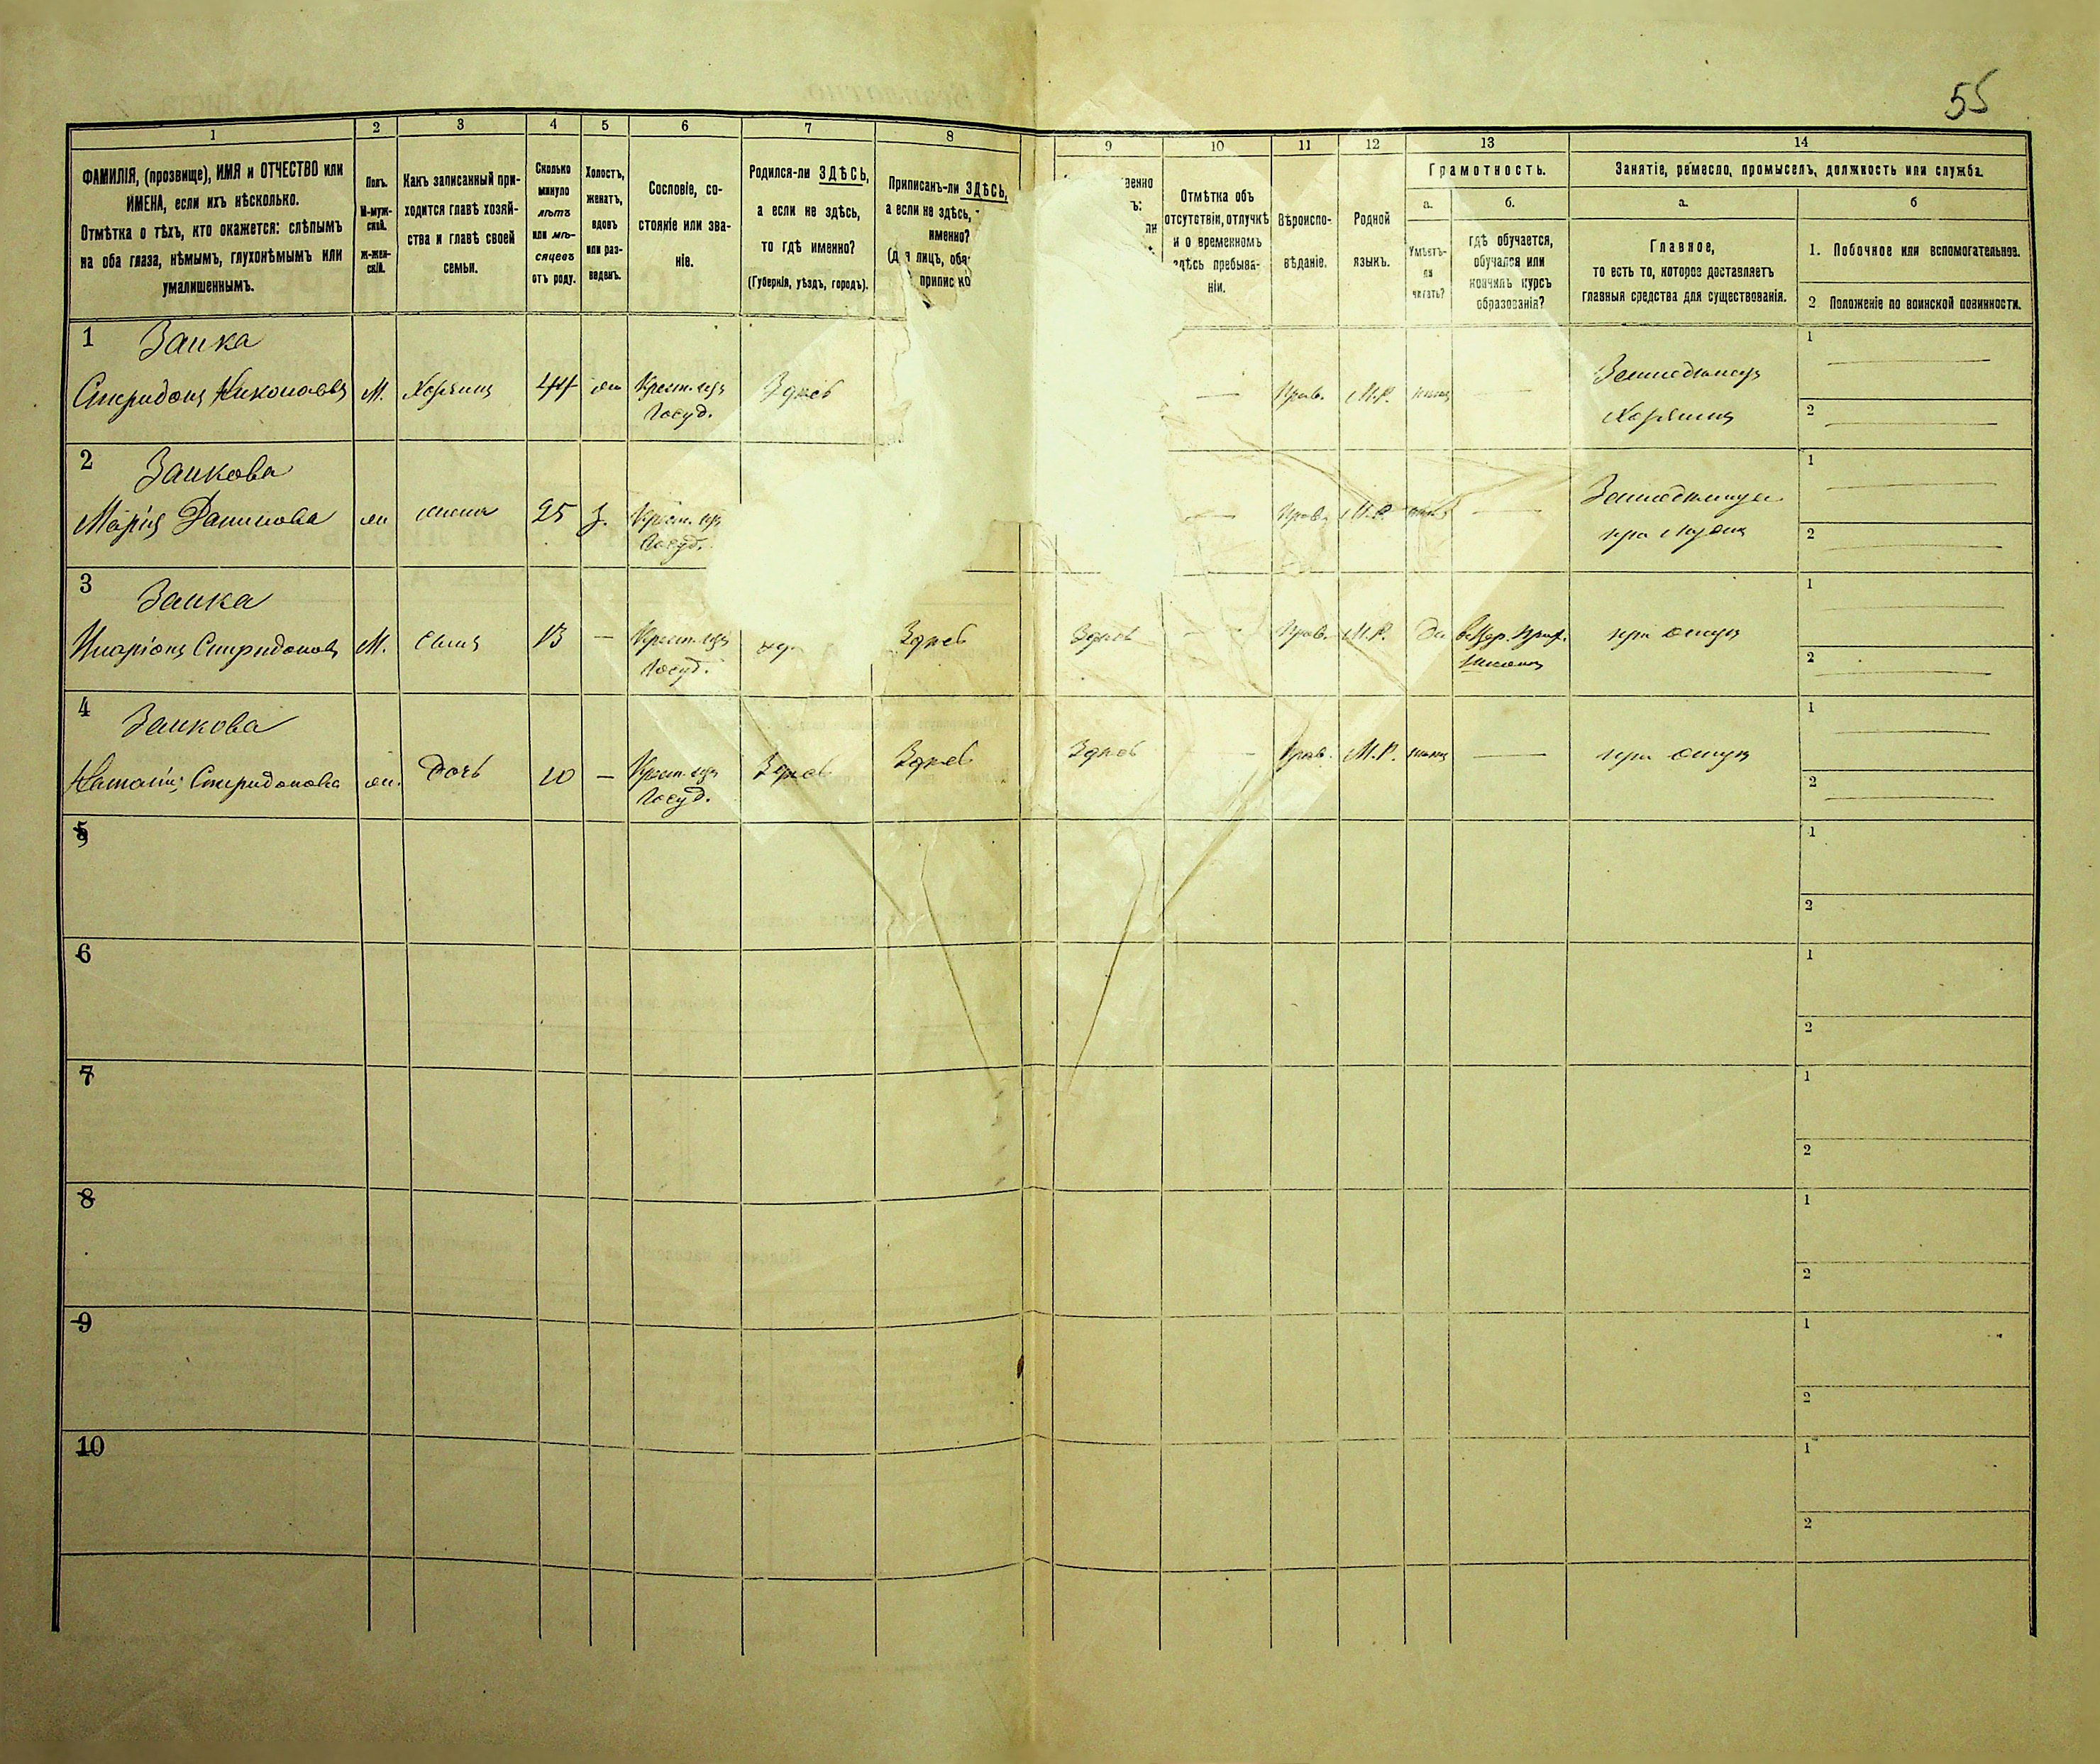 55
1 2 3 4 5 6 7 8 9 10 11 12 13 14
ФАМИЛІЯ, (прозвище), ИМЯ и ОТЧЕСТВО или
ИМЕНА, если ихъ нѣсколько.
Отмѣтка о тѣхъ, кто окажется: слѣпымъ
на оба глаза, нѣмымъ, глухонѣмымъ или
умалишеннымъ.
Полъ.
М-муж-
ской.
ж-жен-
скій.
Какъ записанный при-
ходится главѣ хозяй-
ства и главѣ своей
семьи.
Сколько
минуло
лѣтъ
или мѣ-
сяцевъ
отъ роду.
Холостъ,
женатъ,
вдовъ
или раз-
веденъ.
Сословіе, со-
стояніе или зва-
ніе.
Родился-ли ЗДѢСЬ,
а если не здѣсь,
то гдѣ именно?
(Губернія, уѣздъ, городъ).
Приписанъ-ли ЗДѢСЬ,
а если не здѣсь,
именно?
лицъ,
Отмѣтка объ
отсутствіи, отлучкѣ
и о временномъ
здѣсь пребыва-
ніи.
Вѣроиспо-
вѣданіе.
Родной
языкъ.
Грамотность.
а.
Умѣетъ-
ли
читать?
б.
гдѣ обучается,
обучался или
кончилъ курсъ
образованія?
Занятіе, ремесло, промыселъ, должность или служба.
а.
Главное,
то есть то, которое доставляетъ
главныя средства для существованія.
б
1. Побочное или вспомогательное.
2 Положеніе по воинской повинности.
1 Заика
Спиридонъ Николаевъ М. Хозяинъ 44 жен Крест. изъ Госуд. Здѣсь — Прав. М.Р. нѣтъ — Земледѣлецъ
Хозяинъ
1
2
2 Заикова
Марія Данилова ж жена 25 З. Крест. изъ Госуд. — Прав. М.Р. нѣтъ — Земледѣлица
при мужѣ
1
2
3 Заика
Иларіонъ Спиридоновъ М. сынъ 13 — Крест. изъ Госуд. Здѣсь Здѣсь — Прав. М.Р. да
при отцѣ
1
2
4 Заикова
Наталія Спиридонова ж. дочь 10 — Крест. изъ Госуд. Здѣсь Здѣсь Здѣсь — Прав. М.Р. нѣтъ — при отцѣ
1
2
5
1
2
6
1
2
7
1
2
8
1
2
9
1
2
10
1
2